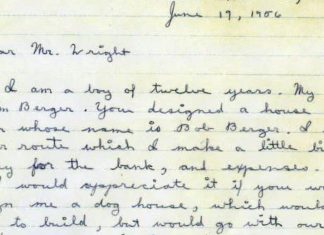 June 19, 1956
ar Mr. Wright
I am a boy of twelve years. My
m Berger. You designed a house
r whose name is Bob Berger. I
r route which I make a little bi
y for the bank, and expenses.
would appreciate it if you w
gn me a dog house, which would
to build, but would go with our